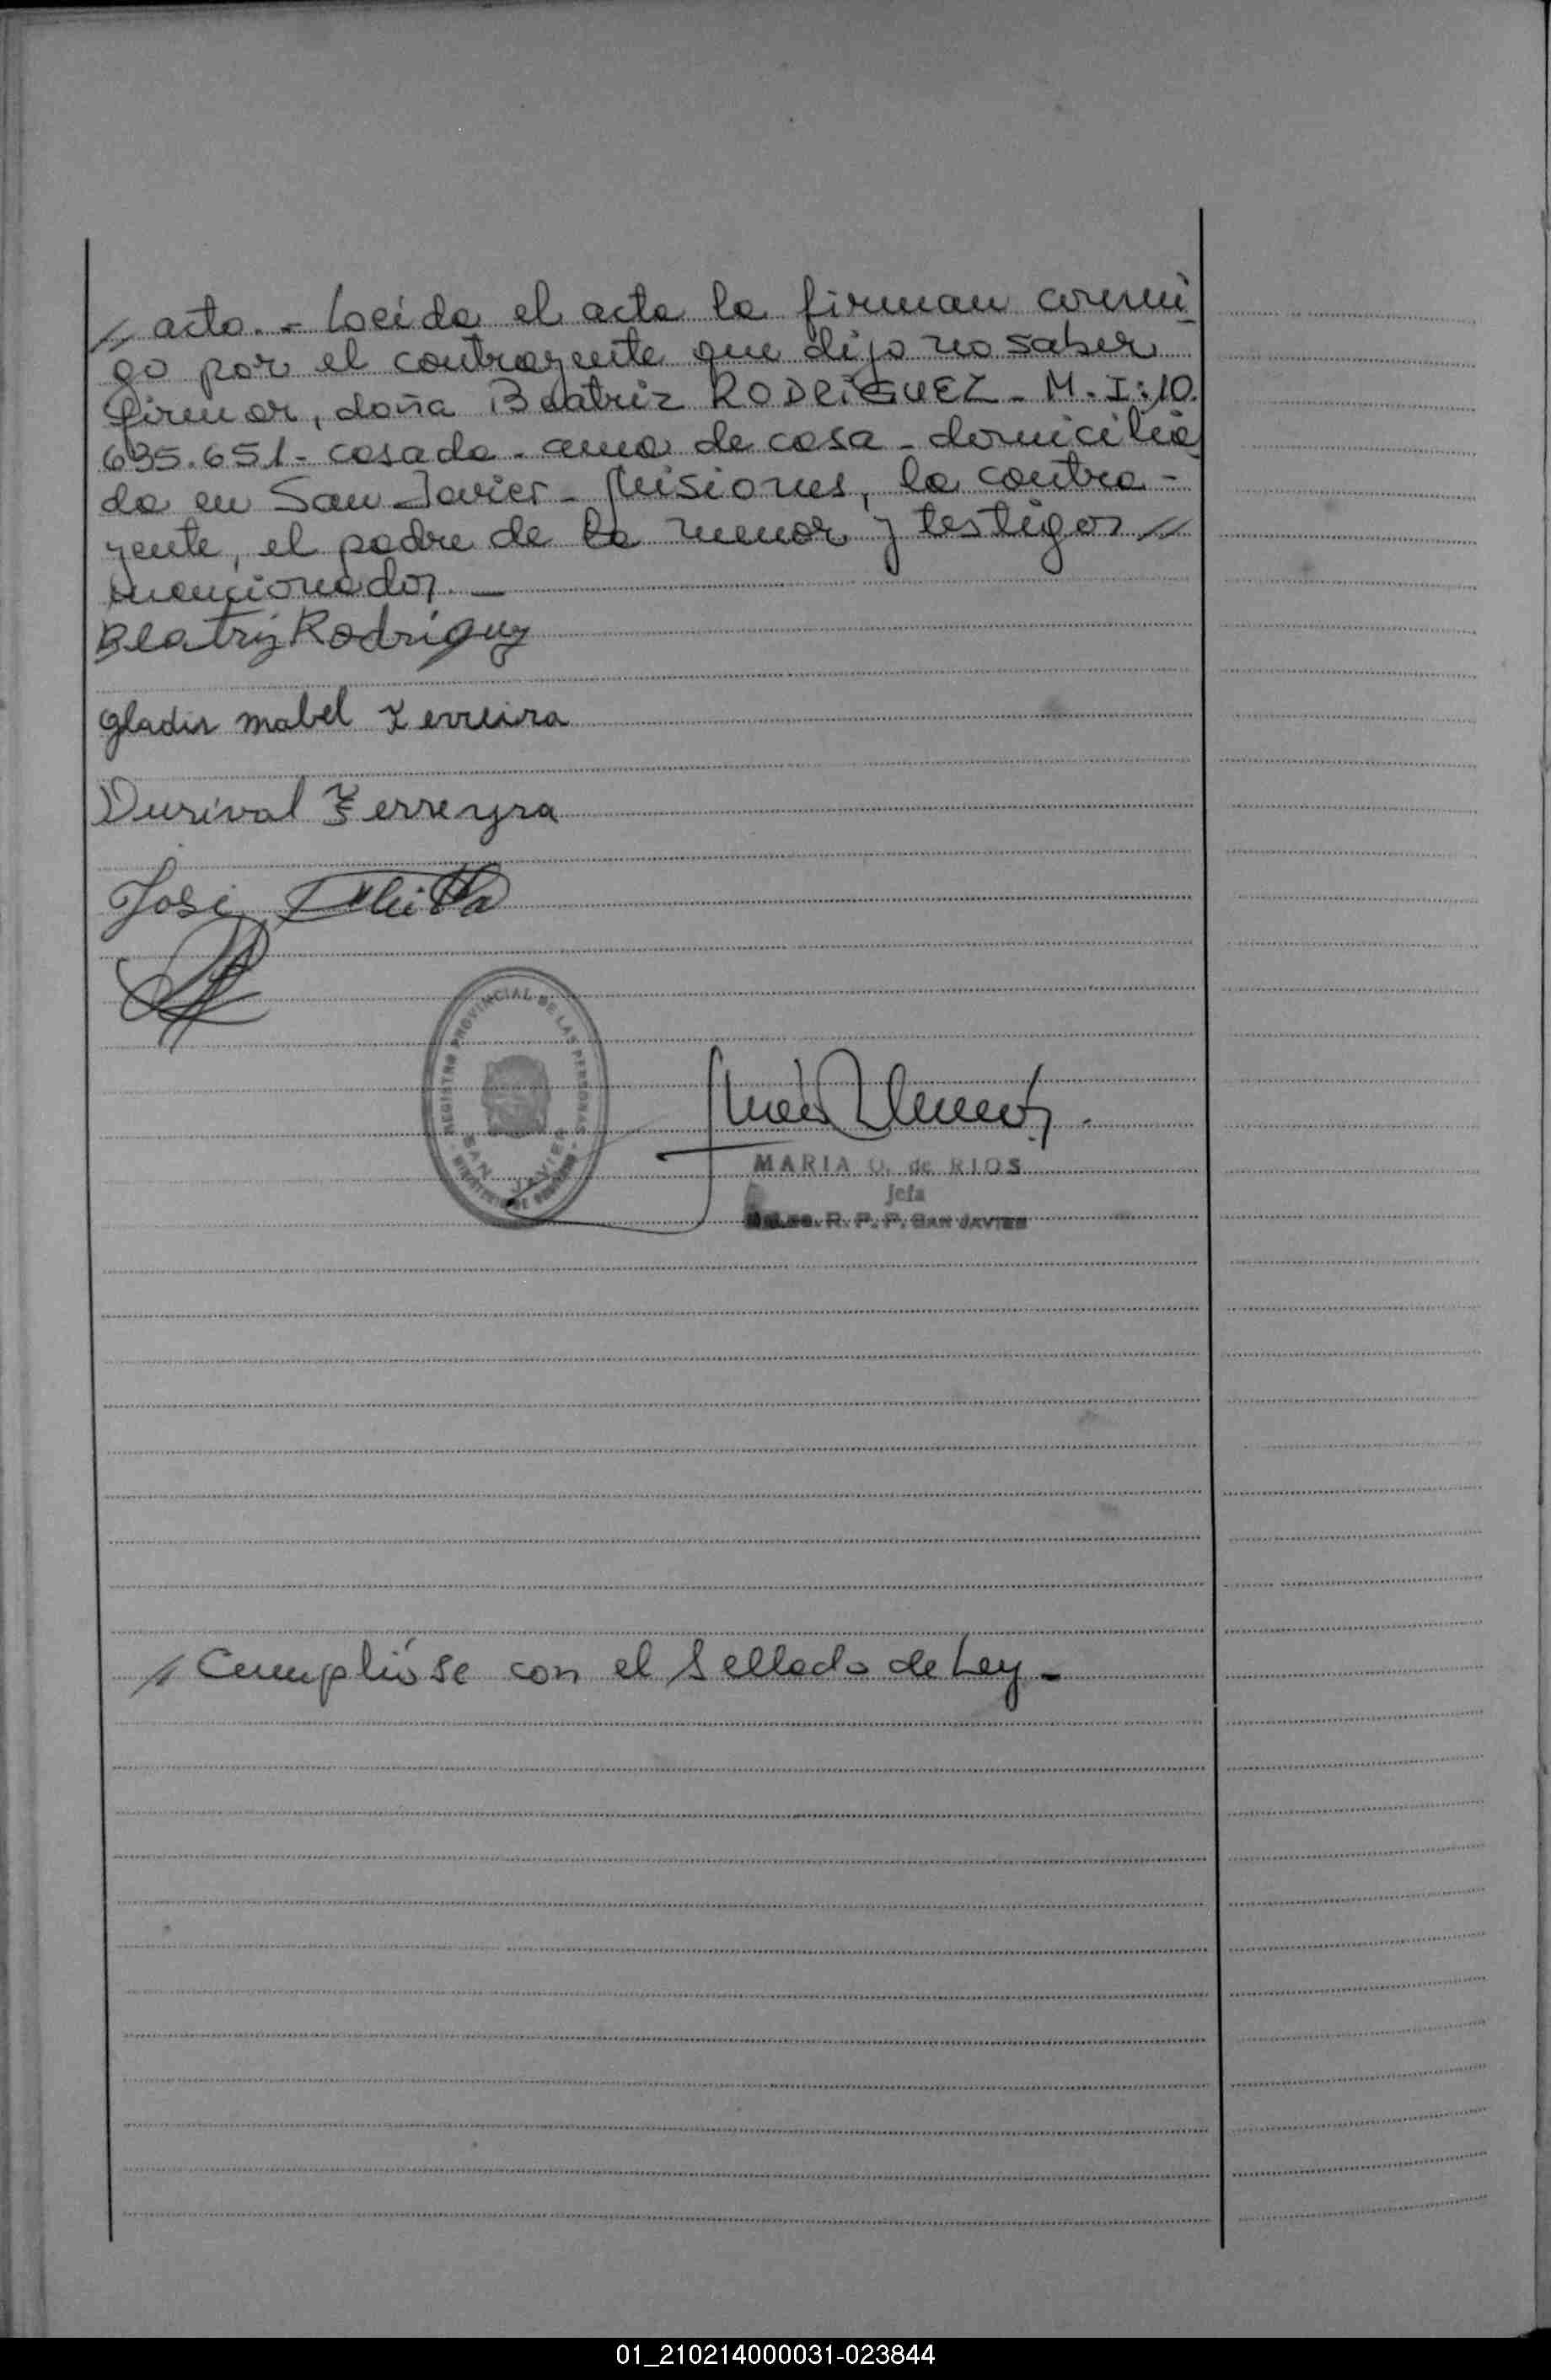 // acto. - Leída el acta la firman conmi
go por el contrayente que dijo no saber
firmar, doña Beatriz RODRÍGUEZ - M. I: 10.
635.651 - casada - ama de casa - domicilia
da en San Javier - Misiones, la contra -
yente, el padre de la menor y testigos //
mencionados. —
Beatriz Rodríguez
Gladis mabel Ferreira
Durival Ferreyra
José
REGISTRO PROVINCIAL DE LAS PERSONAS
SAN JAVIER
MARIA O. de RIOS
Jefa
R. P. P. SAN JAVIER
// Cumplióse con el Sellado de Ley -
01_210214000031-023844